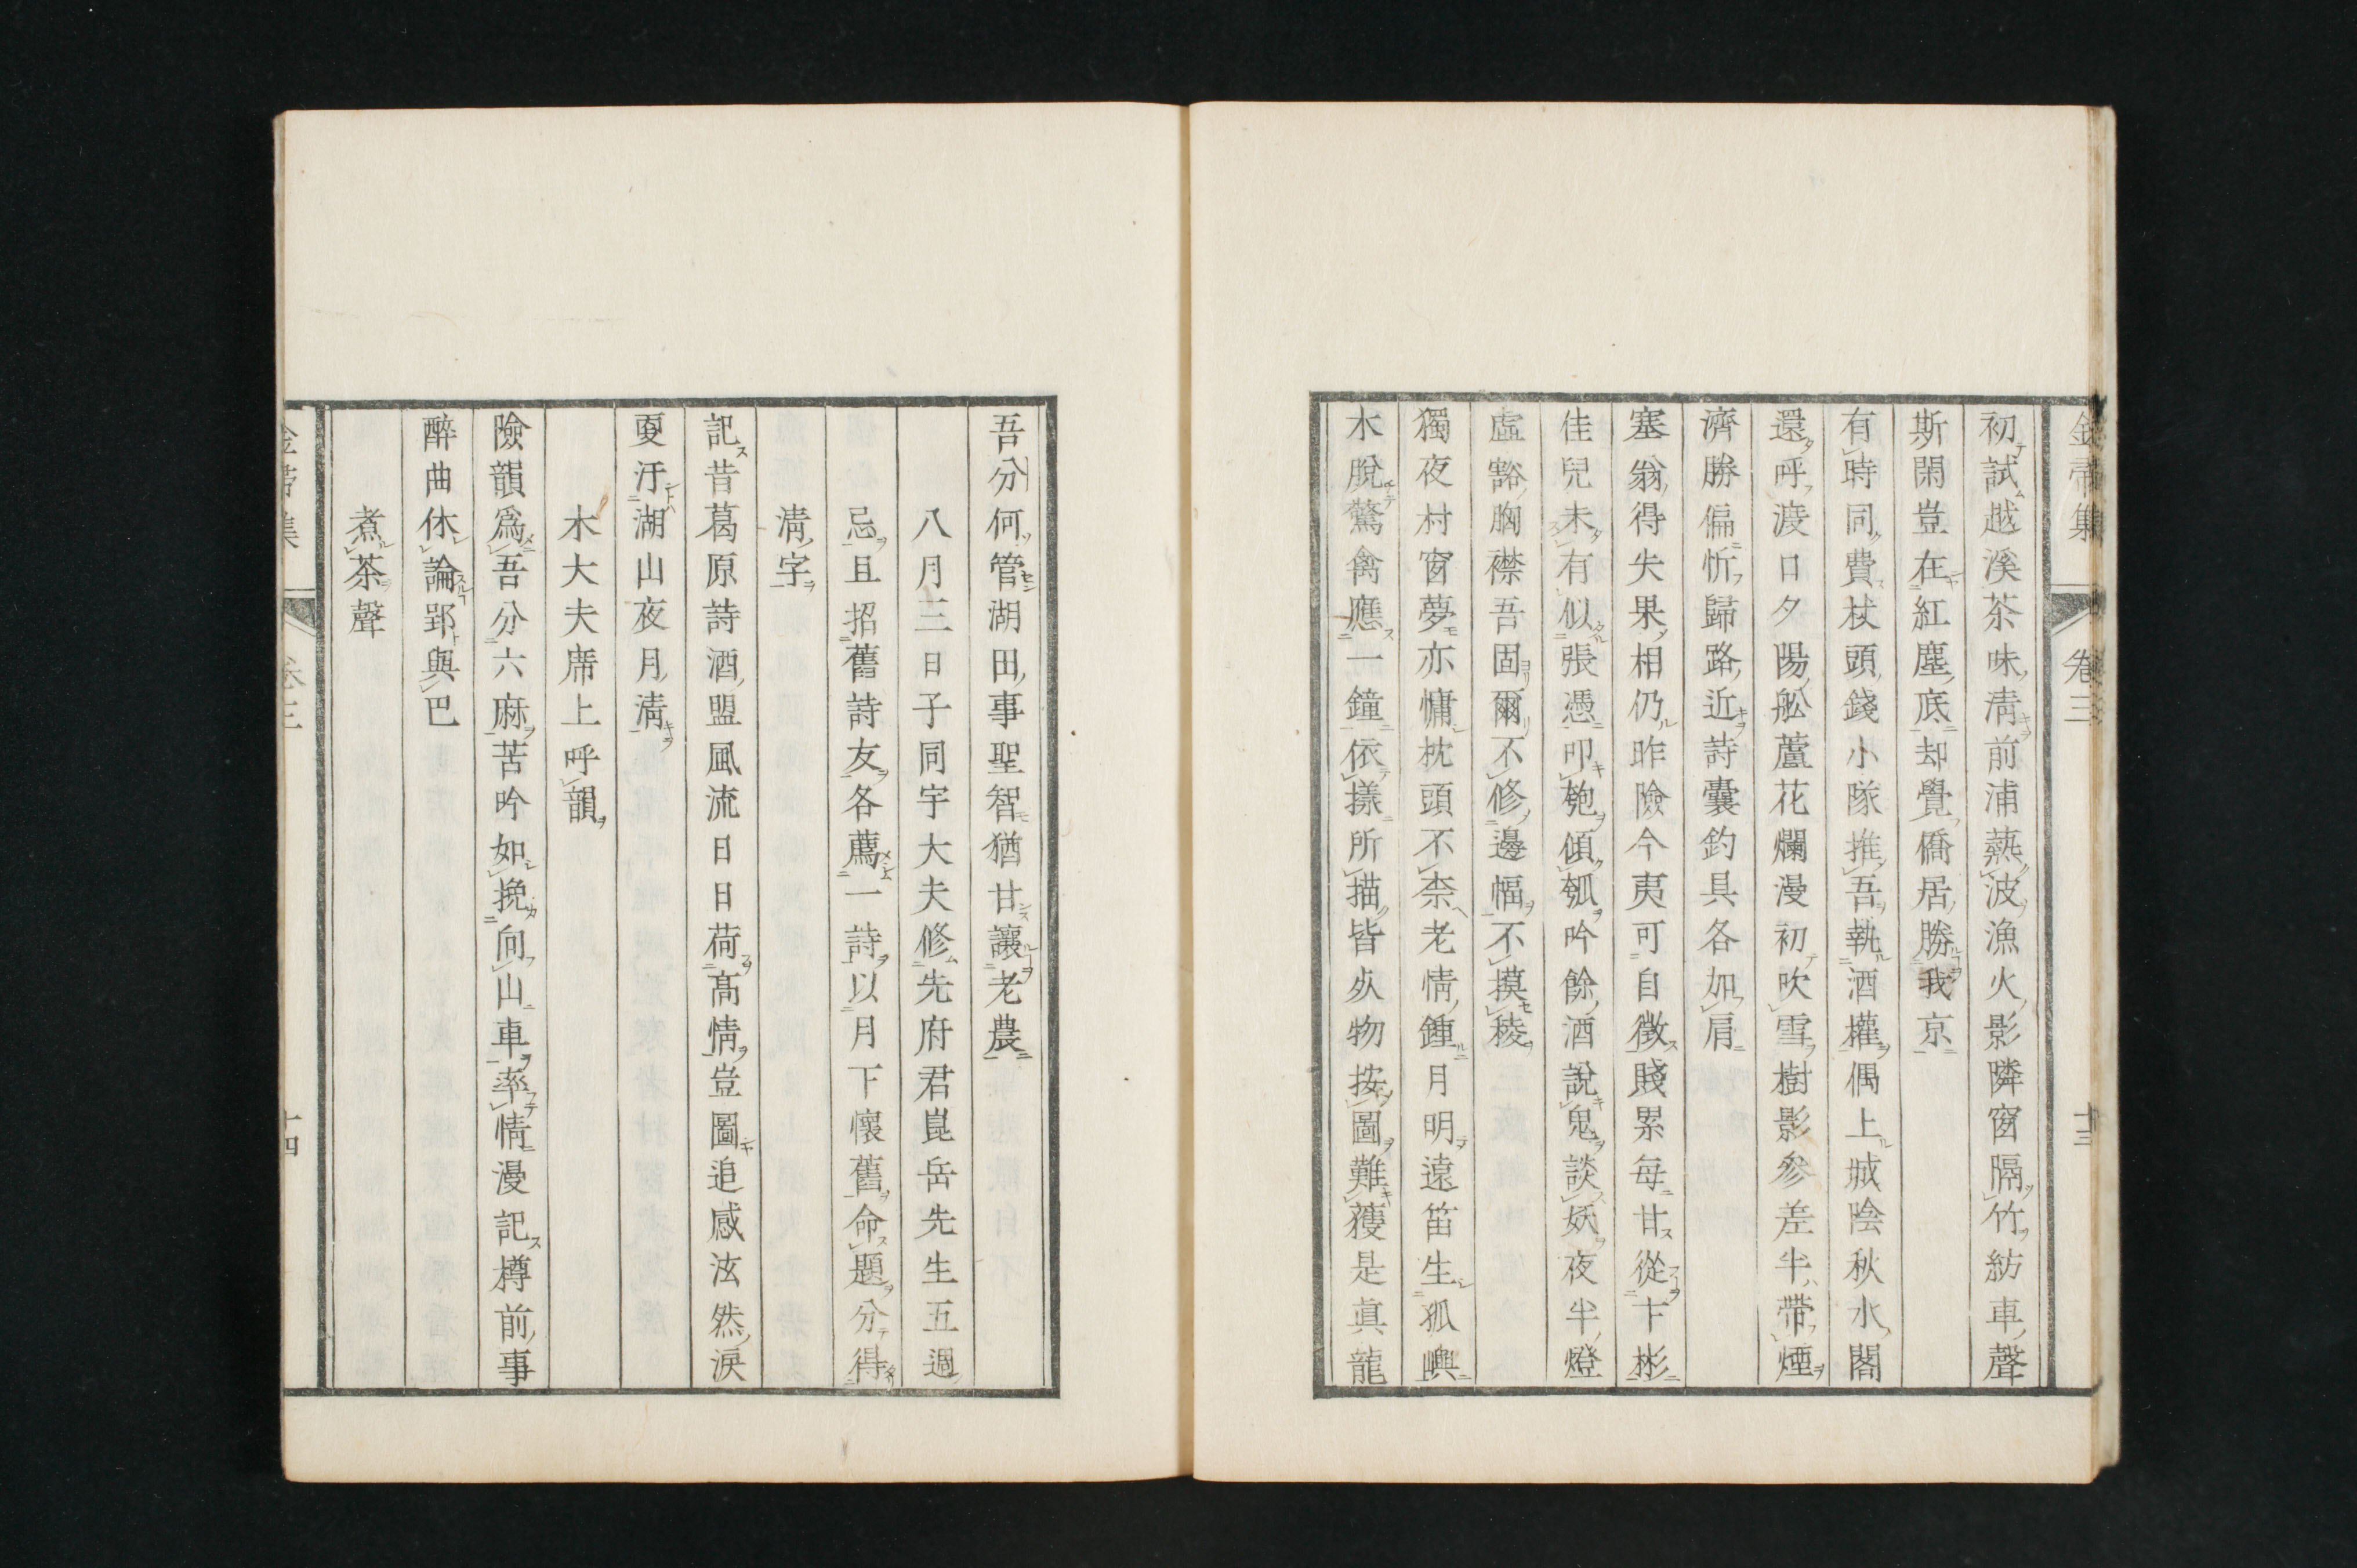 初試越溪茶味淸前浦爇波漁火影隣窗隔竹紡車聲
斯閑豈在紅塵底却覺僑居勝我京
有時同費杖頭錢小隊推吾執酒權偶上城陰秋水閣
還呼渡口夕陽舩蘆花爛漫初吹雪樹影參差半帶煙
濟勝偏忻歸路近詩囊釣具各加肩
塞翁得失果相仍昨險今夷可自徵賤累每甘從卞彬
佳兒未有似張憑叩匏傾瓠吟餘酒說鬼談妖夜半燈
虛豁胸襟吾固爾不修邊幅不摸稜
獨夜村窗夢亦慵枕頭不柰老情鍾月明遠笛生狐嶼
木脫驚禽應一鐘依㨾所描皆夶物按圖難獲是眞龍
吾分何管湖田事聖智猶甘讓老農
八月三日子同宇大夫修先府君崑岳先生五週
忌且招舊詩友各薦一詩以月下懷舊命題分得
淸字
記昔葛原詩酒盟風流日日荷髙情豈圖追感泫然淚
更汙湖山夜月淸
木大夫席上呼韻
險韻爲吾分六麻苦吟如挽向山車率情漫記樽前事
醉曲休論郢與巴
煮茶聲
卷三
十三
十四